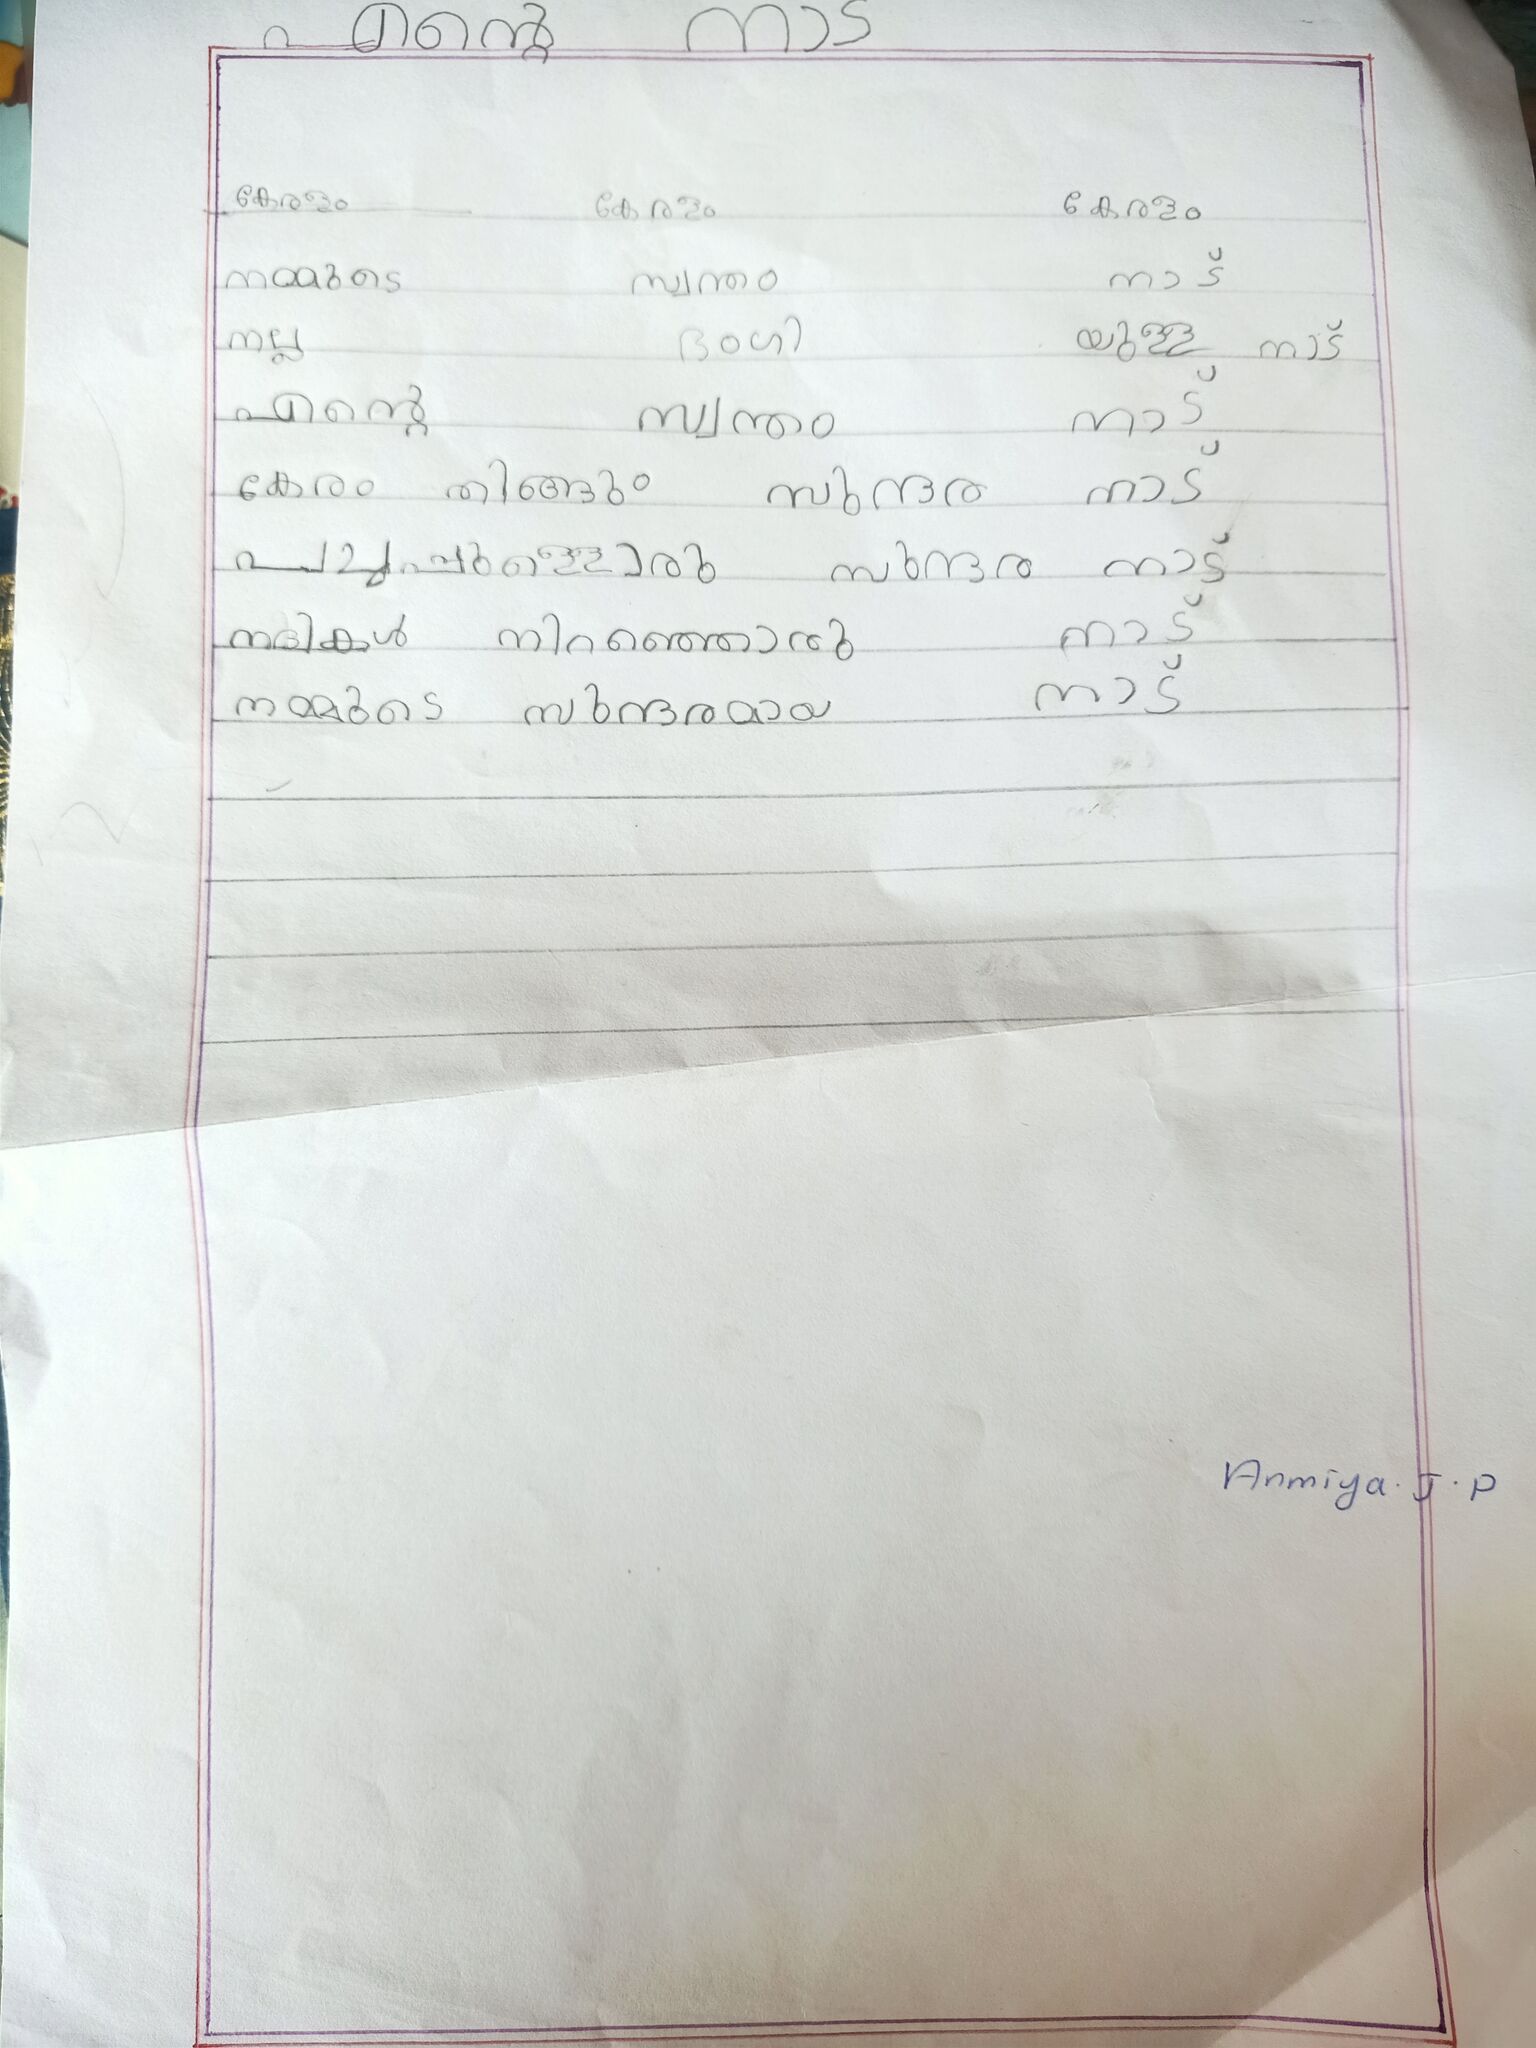 എന്റെ നാട
കേരളം കേരളം കേരളം
നമ്മുടെ സ്വന്തം നാട്
നല്ല ഭംഗി യുള്ള നാട്
എന്റെ സ്വന്തം നാട്
കേരം തിങ്ങും സുന്ദര നാട്
പച്ചപ്പുള്ളൊരു സുന്ദര നാട്
നദികൾ നിറഞ്ഞൊരു നാട്
നമ്മുടെ സുന്ദരമായ നാട്
Anmiya. J. P